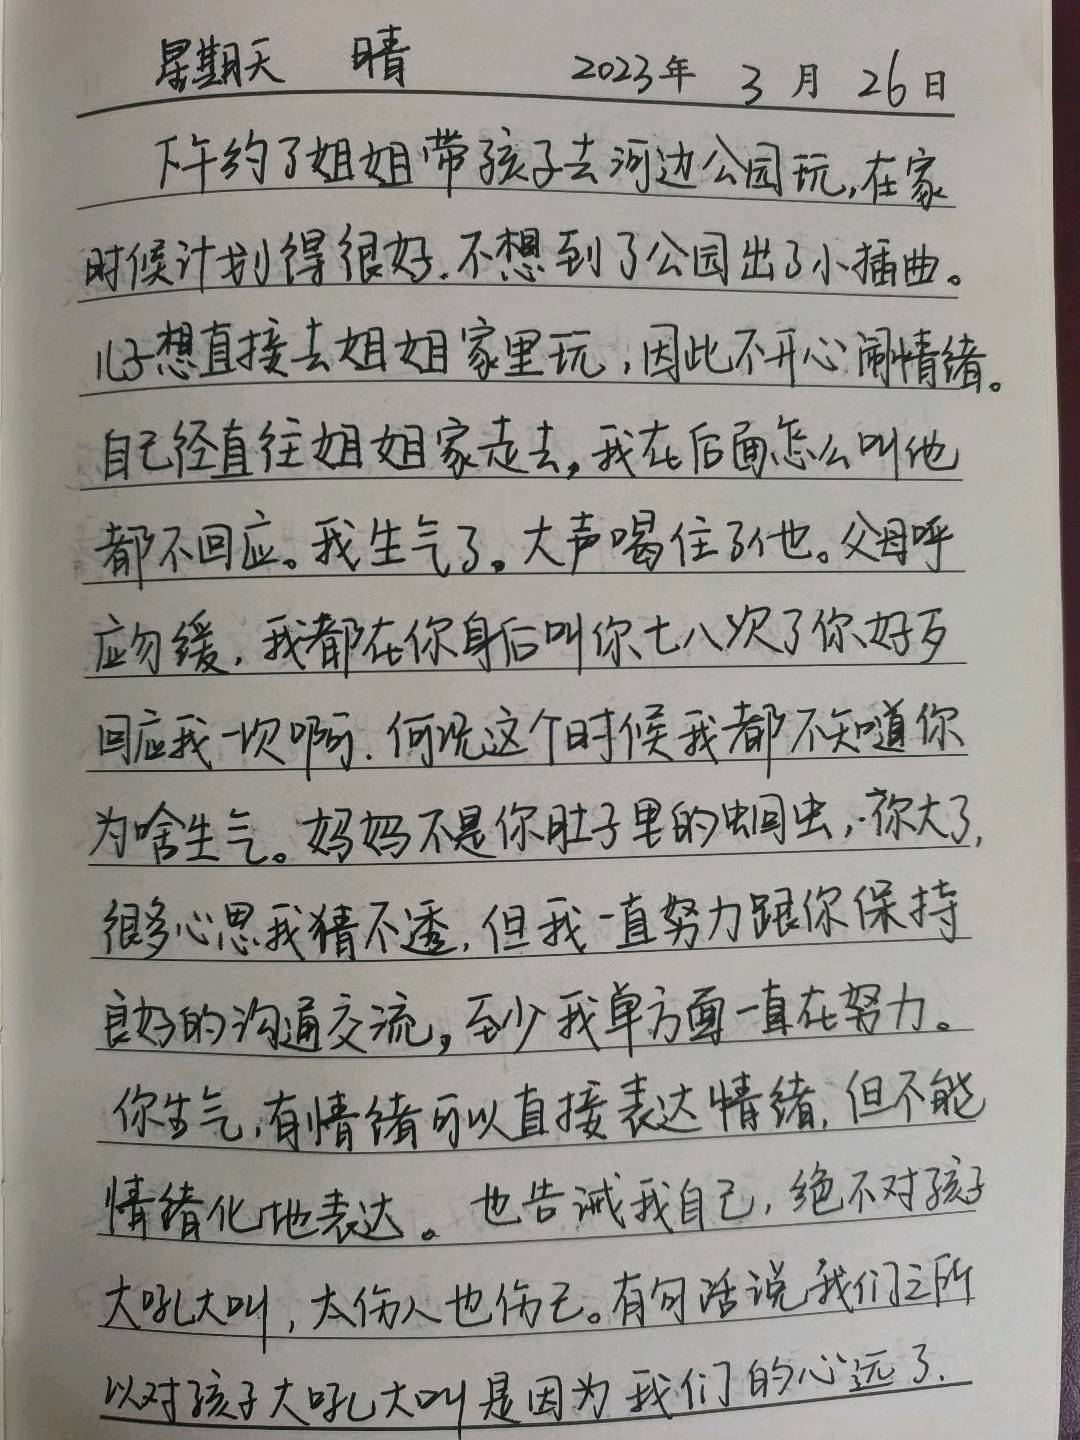 星期天 晴 2023年 3月 26日
下午约了姐姐带孩子去河边公园玩,在家
时候计划得很好.不想到了公园出了小插曲。
儿子想直接去姐姐家里玩,因此不开心闹情绪。
自己径直往姐姐家走去,我在后面怎么叫他
都不回应。我生气了。大声喝住了他。父母呼
应勿缓,我都在你身后叫你七八次了你好歹
回应我一次啊,何况这个时候我都不知道你
为啥生气。妈妈不是你肚子里的蛔虫,你大了,
很多心思我猜不透,但我一直努力跟你保持
良好的沟通交流,至少我单方面一直在努力。
你生气,有情绪可以直接表达情绪,但不能
情绪化地表达。也告诫我自己,绝不对孩子
大吼大叫,太伤人也伤己。有句话说我们之所
以对孩子大吼大叫是因为我们的心远了.